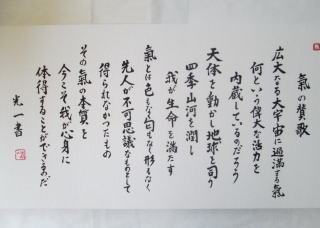 氣の賛歌
広大なる大宇宙に遍満する氣
何という偉大な活力を
内蔵しているのだろう
天体を動かし地球を司り
四季山河を潤し
我が生命を満たす
氣とは色もなく匂もなく形もなく
先人が不可思議なものとして
得られなかったもの
その氣の本質を
今こそ我が心身に
体得することができるのだ
光一書